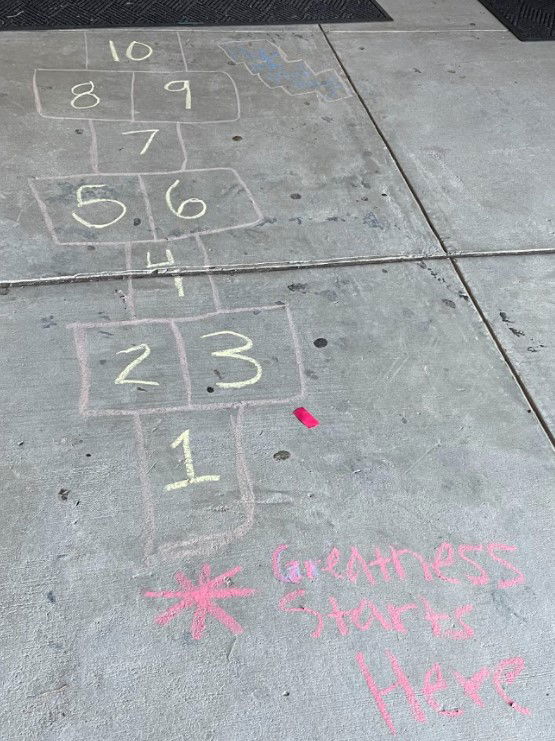 10
8 9
7
5 6
4
2 3
1
* Greatness
Starts
Here